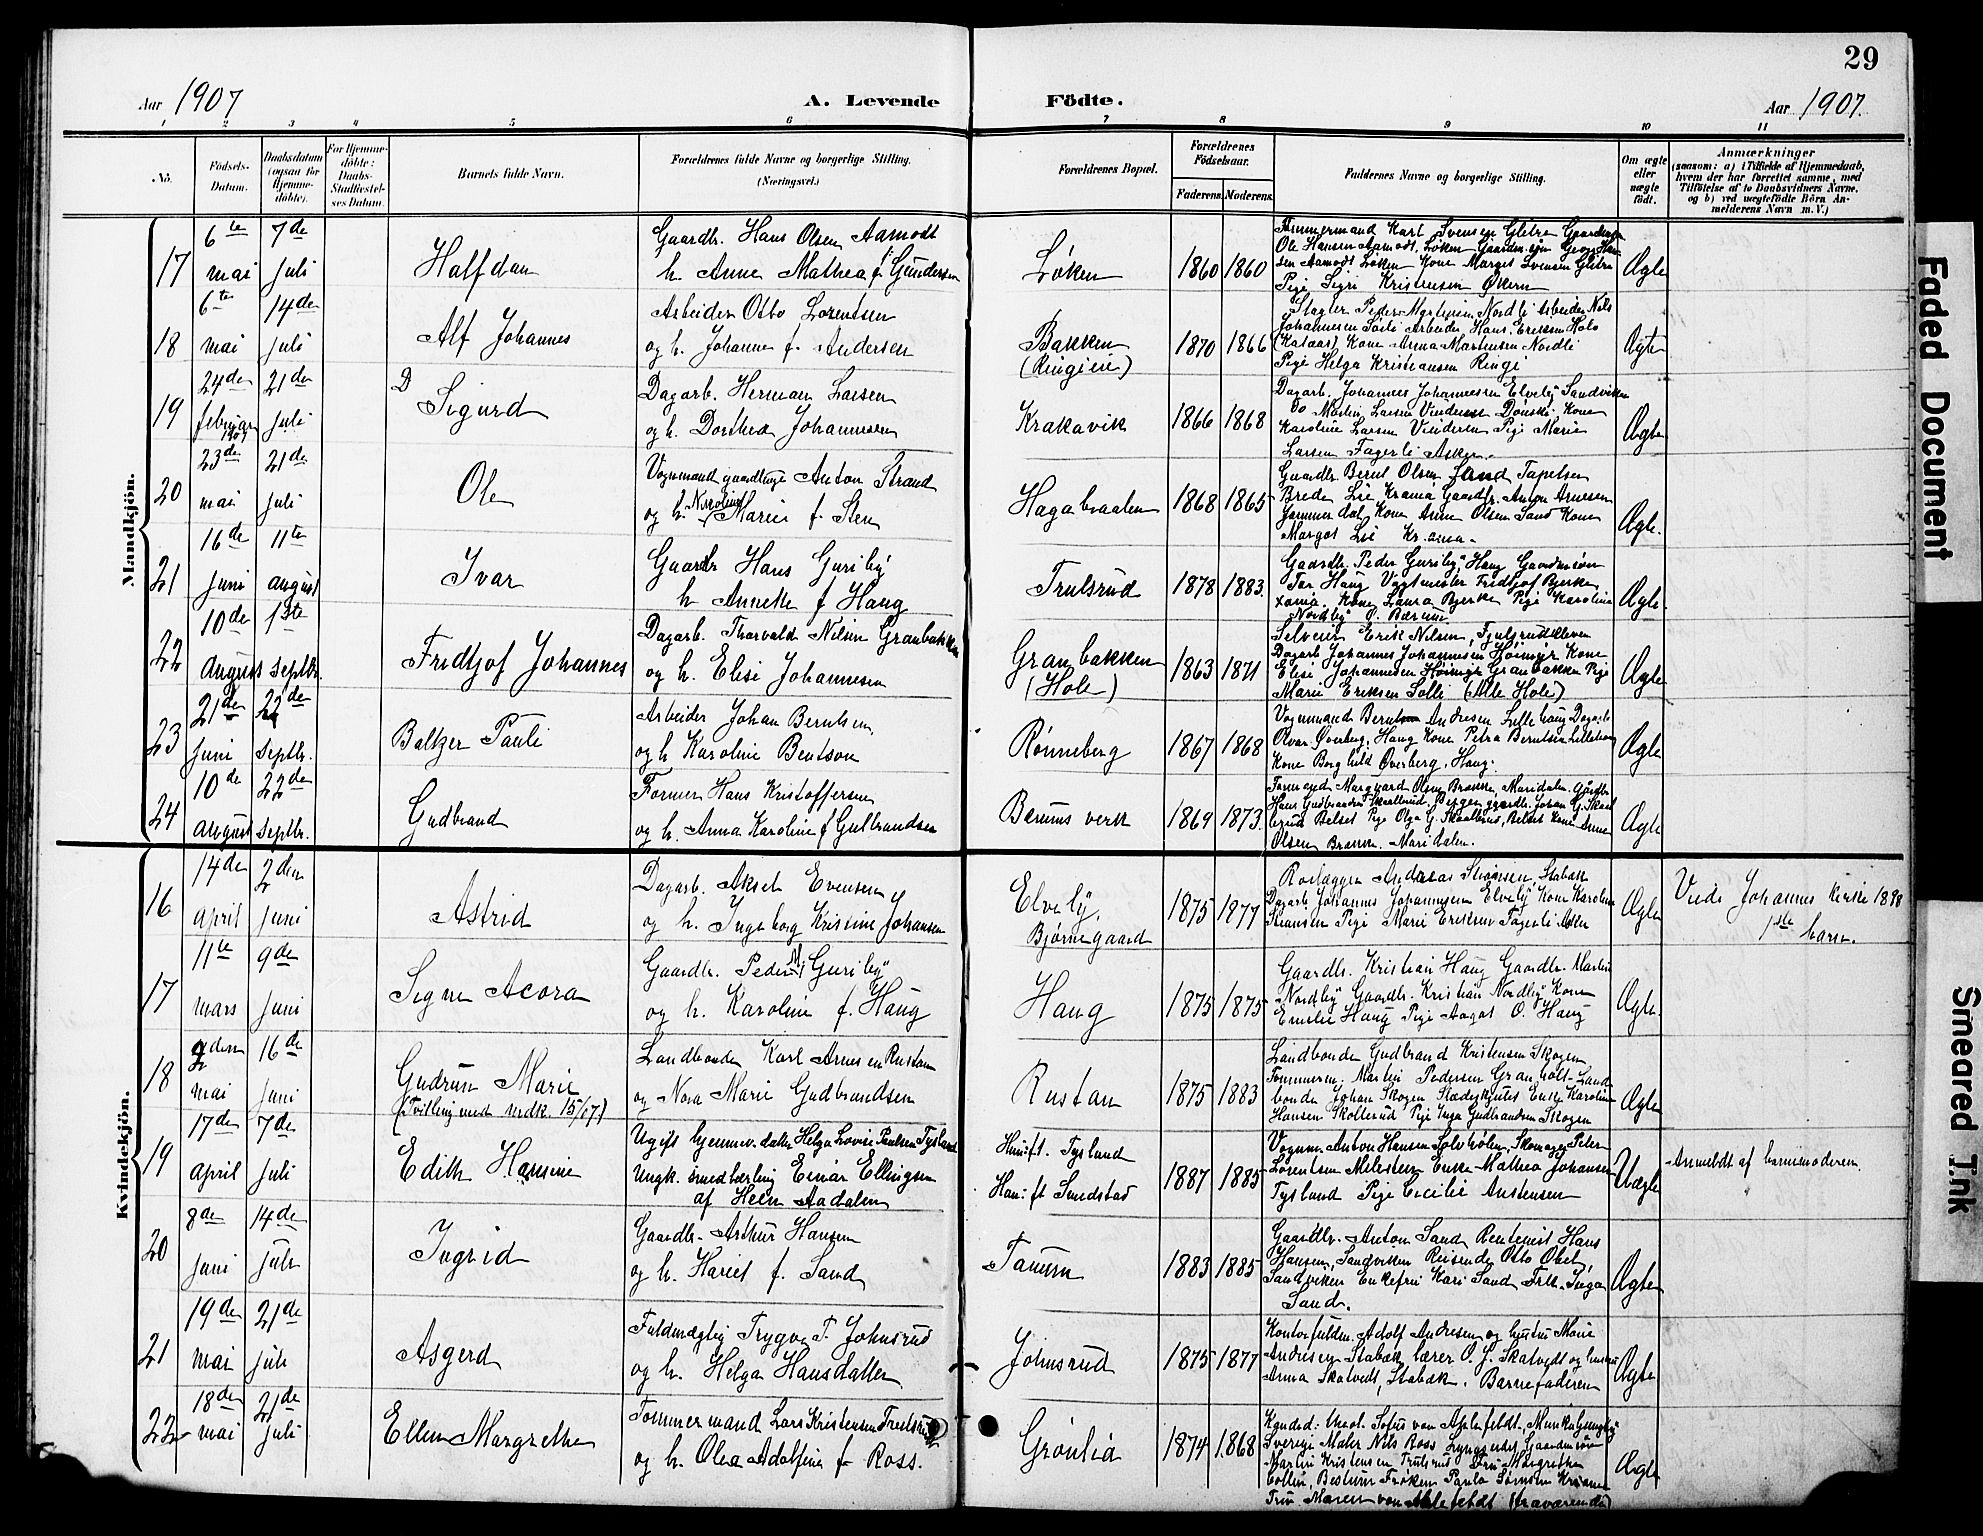 29
Aar 1907
A. Levende Födte.
Aar 1907.
1 2 3 4 5 6 7 8 9 10 11
No.
Födsels-Datum.
Daabsdatum (ogsaa for Hjemmedöbte).
For Hjemmedöbte: Daabs-Stadfæstelses Datum.
Barnets fulde Navn.
Forældrenes fulde Navne og borgerlige Stilling. (Næringsvei.)
Forældrenes Bopæl.
Forældrenes Födselsaar.
Faderens. Moderens.
Faddernes Navne og borgerlige Stilling.
Om ægte eller uægte födt.
Anmærkninger
(saasom: a) i Tilfælde af Hjemmedaab, hvem der har forrettet samme, med Tilföielse af to Daabsvidners Navne, og b) ved uægtefödte Börn Anmelderens Navn m. V.)
Mandkjön.
17 6te mai 7de juli Halfdan Gaardbr. Hans Olsen Aamodt
h. Anne Mathea f. Gundersen Løken 1860 1860 Tømmermand Karl Svensen Glitre
Ole Hansen Aamodt, Løken
Aamodt Løken Kone Margit Svensen Glitre
Pige Sigri Kristensen Økern Ægte
18 6te mai 14de juli Alf Johannes Arbeider Otto Lorentsen
og h. Johanne f. Andersen Bakken (Ringieie) 1870 1866 Peder Martinsen Nordli Arbeider Nils
Johannesen Arbeider Hans Eriksen Holo
Kone Anna Martinsen Nordli
Pige Helga Kristiansen Ringi Ægte
19 24de februar 1907 21de juli D Sigurd Dagarb. Herman Larsen
og h. Dorthea Johannesen Krakavik 1866 1868 Dagarb. Johannes Johannessen Elvely Sandviken
Do Martin Larsen Vinderen Kone
Karoline Larsen Vinderen Pige Marie
Larsen Fagerli Asker. Ægte
20 23de mai 21de juli Ole Vognmand gaardbruger Anton Strand
og h. Nicoline Marie f. Sten Hagabraaten 1868 1865 Gaardbr. Bernt Olsen Sand
Brede Lie Krania Gaardbr. Anton Arnesen
Jammerdal Kone Anna Olsen Sand Kone
Margot Lie Kr.ania. Ægte.
21 16de juni 11te august Ivar Gaardbr Hans Guriby
h. Annette f Haug Trulsrud 1878 1883. Gaardbr. Peder Guriby, Haug Gaardmsøn
Tor Haug Vagtmester Fridtjof Bjerke
Kone Laura Bjerke Pige Karoline
Nordby Ø. Bærum Ægte.
22 10de august 1ste Septbr. Fridtjof Johannes Dagarb. Thorvald Nilsen Granbakken
og h. Elise Johannesen Granbakken (Hole) 1863 1871 Selveier Erik Nilsen,
Dagarb Johannes Johannesen Kone
Elise Johannesen Granbakken Pige
Marie Eriksen Solli (Alle Hole) Ægte
23 21de juni 22de Septbr. Baltzer Pauli Arbeider Johan Berntsen
og h. Karoline Bentson Rønneberg 1867 1868 Vognmand Bernt Andresen Lillehaug Dagarb
Olvar Øverberg, Haug Kone Petra Berntsen Lillehaug
Kone Borghild Øverberg, Haug. Ægte
24 10de august 22de Septbr. Gudbrand Former Hans Kristoffersen
og h. Anna Karoline f Gulbrandsen Bærums verk 1869 1873. Olsen Maridalen
Hans Gudbrandsen gaardbr. Johan G.
Belset Pige Olga G. Belset Kone Anne
Olsen Maridalen. Ægte
Kvindekjön.
16 14de april 2den juni Astrid Dagarb. Aksel Evensen
og h. Ingeborg Kristine Johansen Elvely, Bjørnegaard 1875 1877 Rørlægger Andreas Stabæk
Dagarb Johannes Johannesen Elvely Kone Karoline
Pige Marie Eriksen Fagerli Asker Ægte Viede Johannes kirke 1898
1ste barn.
17 11te mars 9de juni Signe Acora Gaardbr. Peder Guriby
og h. Karoline f. Haug Haug 1875 1875 Gaardbr. Kristian Haug Gaardbr. Martin
Nordby Gaardbr. Kristian Nordby Kone
Emilie Haug Pige Aagot O. Haug Ægte.
18 2den mai 16de juni Gudrun Marie
(Tvilling med mdk. 15/17) Landbonde Karl Arnesen Rustan
og Nora Marie Gudbrandsen Rustan 1875 1883 Landbonde Gudbrand Kristensen Skogen
Martin Pedersen Granholt Land-
bonde Johan Skogen Enke Karoline
Hansen Skollerud Pige Inga Gudbrandsen Skogen Ægte
19 17de april 7de juli Edith Hannine Ugift hjemmev. datter Helga Lovise Paulsen Tysland
Ungk. smedlærling Einar Ellingsen
af Heen Aadalen Tysland
Sundstad 1887 1885 Vognm. Anton Hansen Solvhølen, Skomager Peter
Lorentsen Milesten Enke Mathea Johansen
Tysland Pige Cecilie Austensen Uægte Anmeldt af barnemoderen.
20 8de juni 14de juli Ingrid Gaardbr. Arthur Hansen
og h. Hanet f. Sand Tanum 1883 1885 Gaardbr. Anton Sand Rentenist Hans
Hansen, Sandviken Reisende Otto
Sandviken Enkefru Kari Sand Frk. Inga
Sand. Ægte
21 19de mai 21de juli Asgerd Fuldmægtig Trygve T. Johnsrud
og h. Helga Hansdatter Johnsrud 1875 1877 Adolf Andresen og hustru Marie
Andresen Stabæk lærer O. J. Skatvedt og hustru
Anna Skatvedt, Stabæk. Barnefaderen Ægte
22 18de mai 21de juli Ellen Margrethe Tømmermand Lars Kristensen
og h. Olea Adolfine f. Ross. Grønlia 1874 1868 Sofus von Aphlefeldt,
Sverige Maler Nils Ross Gaardmsøn
Martin Kristensen Trulsrud Fru Margrethe
Collin, Bestum Frøken Paula
Fru Maren von Ahlefeldt (fraværende) Ægte
Faded Document
Smeared Ink